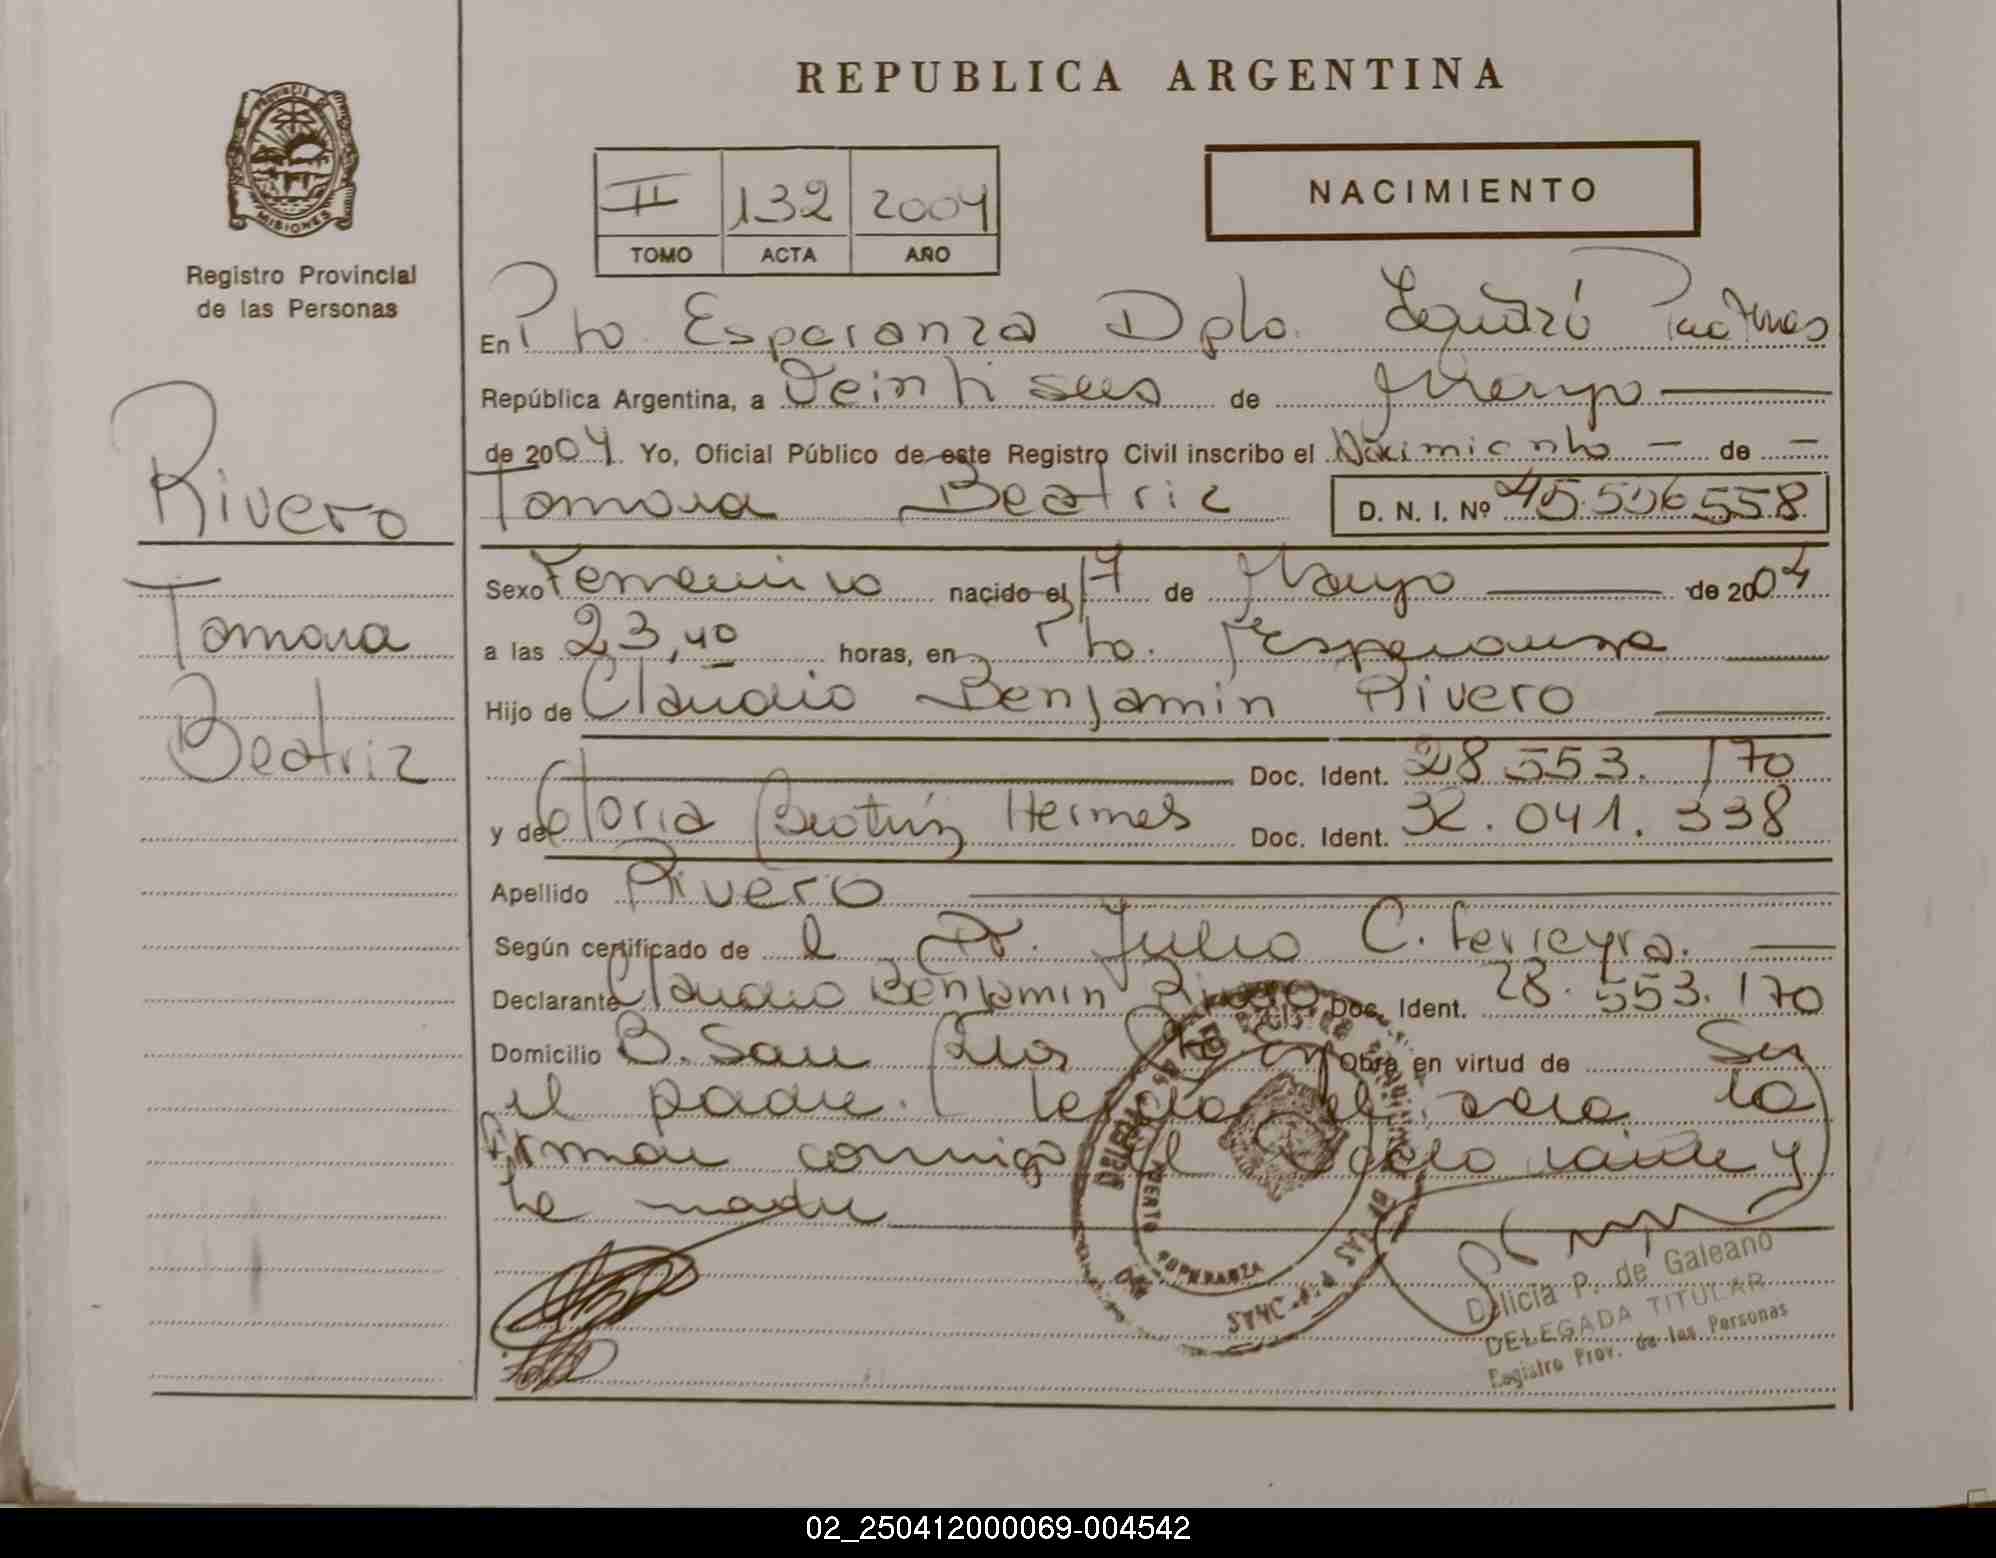 REPUBLICA ARGENTINA
PROVINCIA DE
MISIONES
Registro Provincial
de las Personas
II 132 2004
TOMO ACTA AÑO
NACIMIENTO
En Pto. Esperanza Dpto. Iguazú
República Argentina, a Veintiseis de Mayo
de 2004 Yo, Oficial Público de este Registro Civil inscribo el Nacimiento de
Tamara Beatriz D. N. I. Nº 45.506.558
Rivero
Tamara
Beatriz
Sexo Femenino nacido el 17 de Mayo de 2004
a las 23,40 horas, en Pto. Esperanza
Hijo de Claudio Benjamin Rivero
Doc. Ident. 28.553.170
y de Gloria Beatríz Hermes Doc. Ident. 32.041.338
Apellido Rivero
Según certificado de l Dr. Julio C. Ferreyra.
Declarante Claudio Benjamin Rivero Doc. Ident. 28.553.170
Domicilio B. San Obra en virtud de Ser
el padre. Leída el acta la
firman conmigo el declarante y
la madre
PUERTO ESPERANZA
Delicia P. de Galeano
DELEGADA TITULAR
Registro Prov. de las Personas
02_250412000069-004542